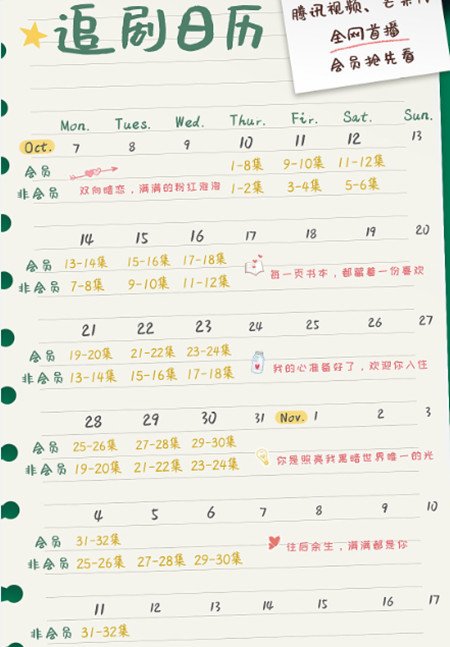 追剧日历
腾讯视频、芒果
全网首播
会员抢先看
Mon. Tues. Wed. Thur. Fir. Sat. Sun.
Oct. 7 8 9 10 11 12 13
会员 1-8集 9-10集 11-12集
非会员 双向暗恋，满满的粉红泡泡 1-2集 3-4集 5-6集
14 15 16 17 18 19 20
会员 13-14集 15-16集 17-18集
非会员 7-8集 9-10集 11-12集 每一页书本，都藏着一份喜欢
21 22 23 24 25 26 27
会员 19-20集 21-22集 23-24集
非会员 13-14集 15-16集 17-18集 我的心准备好了，欢迎你入住
28 29 30 31 Nov. 1 2 3
会员 25-26集 27-28集 29-30集
非会员 19-20集 21-22集 23-24集 你是照亮我黑暗世界唯一的光
4 5 6 7 8 9 10
会员 31-32集
非会员 25-26集 27-28集 29-30集 往后余生，满满都是你
11 12 13 14 15 16 17
非会员 31-32集